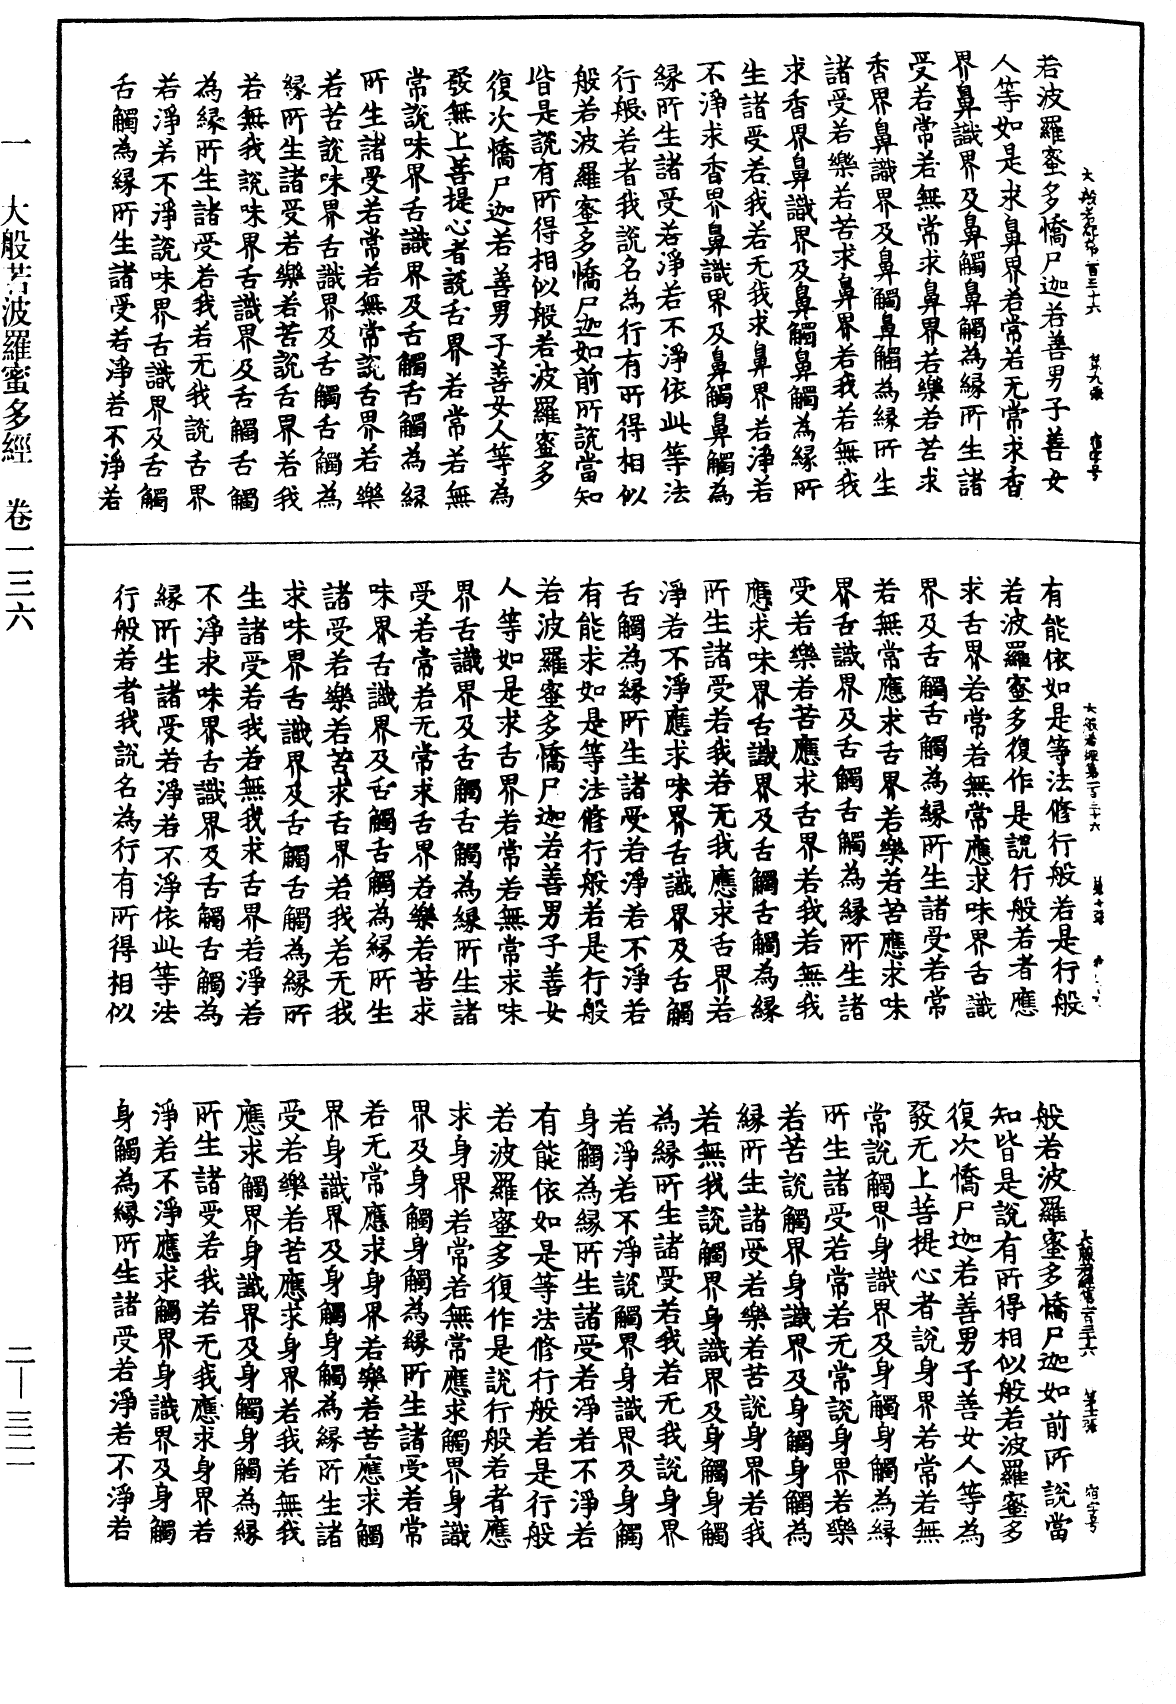 若波羅蜜多憍尸迦若善男子善女
人等如是求鼻界若常若无常求香
界鼻識界及鼻觸鼻觸為緣所生諸
受若常若無常求鼻界若樂若苦求
香界鼻識界及鼻觸鼻觸為緣所生
諸受若樂若苦求鼻界若我若無我
求香界鼻識界及鼻觸鼻觸為緣所
生諸受若我若无我求鼻界若淨若
不淨求香界鼻識界及鼻觸鼻觸為
緣所生諸受若淨若不淨依此等法
行般若者我說名為行有所得相似
般若波羅蜜多憍尸迦如前所說當知
皆是說有所得相似般若波羅蜜多
復次憍尸迦若善男子善女人等為
發無上菩提心者說舌界若常若無
常說味界舌識界及舌觸舌觸為緣
所生諸受若常若無常說舌界若樂
若苦說味界舌識界及舌觸舌觸為
緣所生諸受若樂若苦說舌界若我
若無我說味界舌識界及舌觸舌觸
為緣所生諸受若我若无我說舌界
若淨若不淨說味界舌識界及舌觸
舌觸為緣所生諸受若淨若不淨若
大般若經第一百三十六 第九張 宿字号
有能依如是等法修行般若是行般
若波羅蜜多復作是說行般若者應
求舌界若常若無常應求味界舌識
界及舌觸舌觸為緣所生諸受若常
若無常應求舌界若樂若苦應求味
界舌識界及舌觸舌觸為緣所生諸
受若樂若苦應求舌界若我若無我
應求味界舌識界及舌觸舌觸為緣
所生諸受若我若无我應求舌界若
淨若不淨應求味界舌識界及舌觸
舌觸為緣所生諸受若淨若不淨若
有能求如是等法修行般若是行般
若波羅蜜多憍尸迦若善男子善女
人等如是求舌界若常若無常求味
界舌識界及舌觸舌觸為緣所生諸
受若常若无常求舌界若樂若苦求
味界舌識界及舌觸舌觸為緣所生
諸受若樂若苦求舌界若我若无我
求味界舌識界及舌觸舌觸為緣所
生諸受若我若無我求舌界若淨若
不淨求味界舌識界及舌觸舌觸為
緣所生諸受若淨若不淨依此等法
行般若者我說名為行有所得相似
大般若經第一百三十六 第十張
般若波羅蜜多憍尸迦如前所說當
知皆是說有所得相似般若波羅蜜多
復次憍尸迦若善男子善女人等為
發无上菩提心者說身界若常若無
常說觸界身識界及身觸身觸為緣
所生諸受若常若无常說身界若樂
若苦說觸界身識界及身觸身觸為
緣所生諸受若樂若苦說身界若我
若無我說觸界身識界及身觸身觸
為緣所生諸受若我若无我說身界
若淨若不淨說觸界身識界及身觸
身觸為緣所生諸受若淨若不淨若
有能依如是等法修行般若是行般
若波羅蜜多復作是說行般若者應
求身界若常若無常應求觸界身識
界及身觸身觸為緣所生諸受若常
若无常應求身界若樂若苦應求觸
界身識界及身觸身觸為緣所生諸
受若樂若苦應求身界若我若無我
應求觸界身識界及身觸身觸為緣
所生諸受若我若无我應求身界若
淨若不淨應求觸界身識界及身觸
身觸為緣所生諸受若淨若不淨若
大般若經第一百三十六 第十一張 宿字号
一 大般若波羅蜜多經 卷一三六 二—三二一